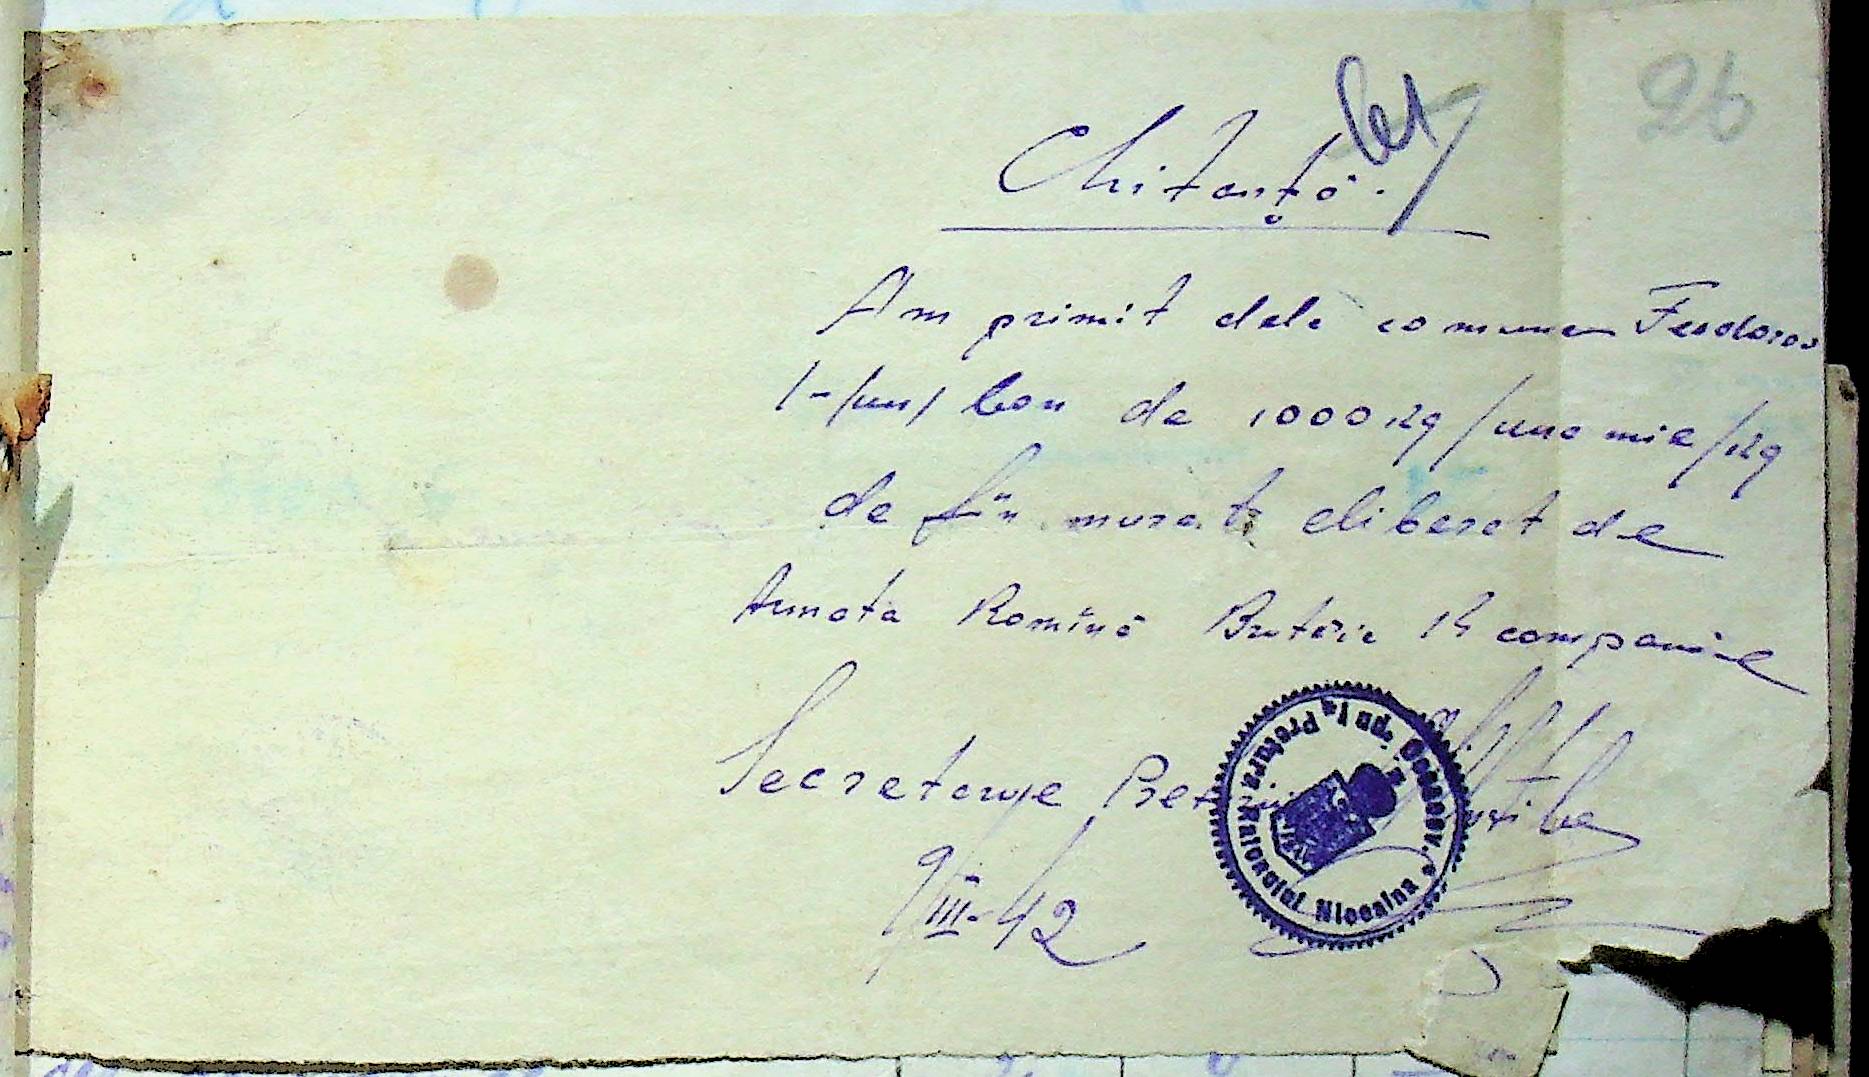 26
Chitanță.
Am primit dela comuna Feodorov
1-/un/ bon de 1000 kg /una mie/ kg
de fîn murat eliberat de
Armata Romînă Brutărie 15 companie
Secretarul Preturii
9/III-42
Pretura Raionului Nicoaina